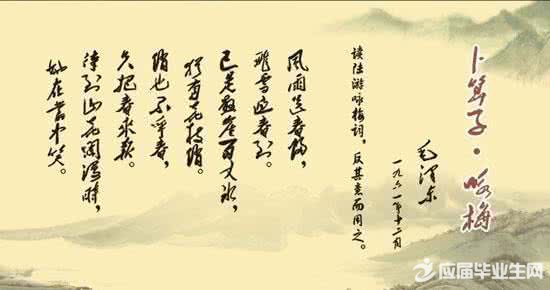 卜算子·咏梅
毛泽东
一九六一年十二月
读陆游咏梅词，反其意而用之。
風雨送春歸，
飛雪迎春到。
已是懸崖百丈冰，
猶有花枝俏。
俏也不爭春，
只把春來報。
待到山花爛漫時，
她在叢中笑。
应届毕业生网